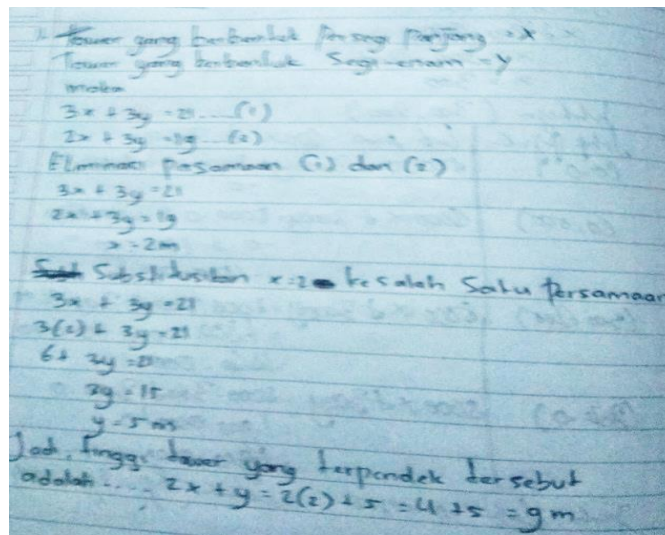 Tower yang berbentuk Persegi Panjang = x
Tower yang berbentuk Segi-enam = y
maka
3x + 3y = 21 .... (1)
2x + 3y = 19 ... (2)
Eliminasi Pesamaan (1) dan (2)
3x + 3y = 21
2x + 3y = 19
x = 2m
Substitusikan x = 2 ke salah Satu Persamaan
3x + 3y = 21
3(2) + 3y = 21
6 + 3y = 21
3y = 15
y = 5 m
Jadi, tinggi tower yang terpendek tersebut
adalah .... 2x + y = 2(2) + 5 = 4 + 5 = 9 m